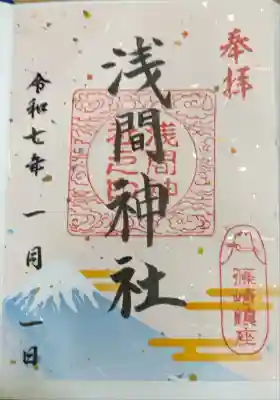 奉拝
浅間神社
篠崎鎮座
令和七年 一月 一日